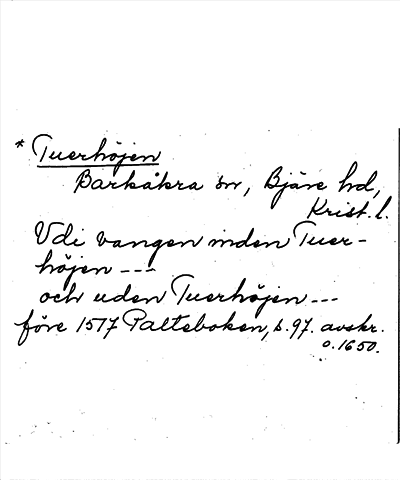 * Tuerhöjen
Barkåkra sn, Bjäre hd,
Krist. l.
Vdi vangen inden Tuer-
höjen ---
och uden Tuerhöjen ---
före 1517 Palteboken, s. 97. avskr.
o. 1650.